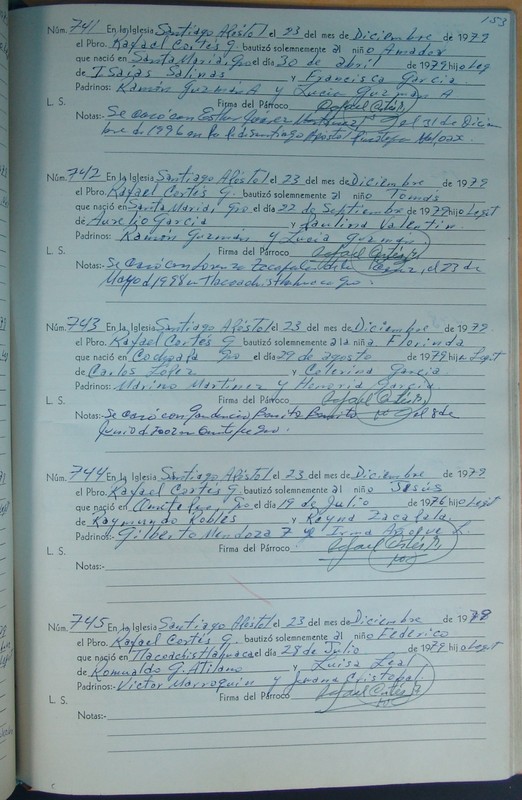 153
Núm. 741 En la Iglesia Santiago Apóstol el 23 del mes de Diciembre de 1979
el Pbro. Rafael Cortés G. bautizó solemnemente al niño Amador
que nació en Santa María, Gro el día 30 de abril de 1979 hijo Leg
de Isaías Salinas y Francisca García
Padrinos: Ramón Guzmán A y Lucía Guzmán A
L. S. Firma del Párroco Rafael Cortés G.
Notas: Se casó con Ester el 31 de Diciem
bre de 1996 en la P. de Santiago Apóstol
Núm. 742 En la Iglesia Santiago Apóstol el 23 del mes de Diciembre de 1979
el Pbro. Rafael Cortés G. bautizó solemnemente al niño Tomás
que nació en Santa María, Gro el día 22 de Septiembre de 1979 hijo Legit
de Aurelio García y Paulina Valentín
Padrinos: Ramón Guzmán y Lucía Guzmán
L. S. Firma del Párroco Rafael Cortés G.
Notas:- Se casó con Lorenza el 23 de
Mayo d 1998 en Tlacoachistlahuaca Gro.
Núm. 743 En la Iglesia Santiago Apóstol el 23 del mes de Diciembre de 1979
el Pbro. Rafael Cortés G bautizó solemnemente a la niña Florinda
que nació en Cochoapa Gro el día 29 de agosto de 1979 hija Legit
de Carlos López y Celerina García
Padrinos: Marino Martínez y Honoria García
L. S. Firma del Párroco Rafael Cortés G.
Notas: Se casó con Gaudencio Benito el 8 de
Junio d 2002 en Gro.
Núm. 744 En la Iglesia Santiago Apóstol el 23 del mes de Diciembre de 1979
el Pbro. Rafael Cortés G. bautizó solemnemente al niño Jesús
que nació en Gro el día 19 de Julio de 1976 hijo Legit
de Raymundo Robles y Reyna Zacalala
Padrinos:- Gilberto Mendoza y Irma
L. S. Firma del Párroco: Rafael Cortés G.
Notas:-
Núm. 745 En la Iglesia Santiago Apóstol el 23 del mes de Diciembre de 1979
el Pbro. Rafael Cortés G. bautizó solemnemente al niño Federico
que nació en Tlacoachistlahuaca el día 28 de Julio de 1979 hijo Legit
de Romualdo G. Atilano y Luisa Leal
Padrinos:- Victor Marroquín y Juana
L. S. Firma del Párroco Rafael Cortés G.
Notas:-